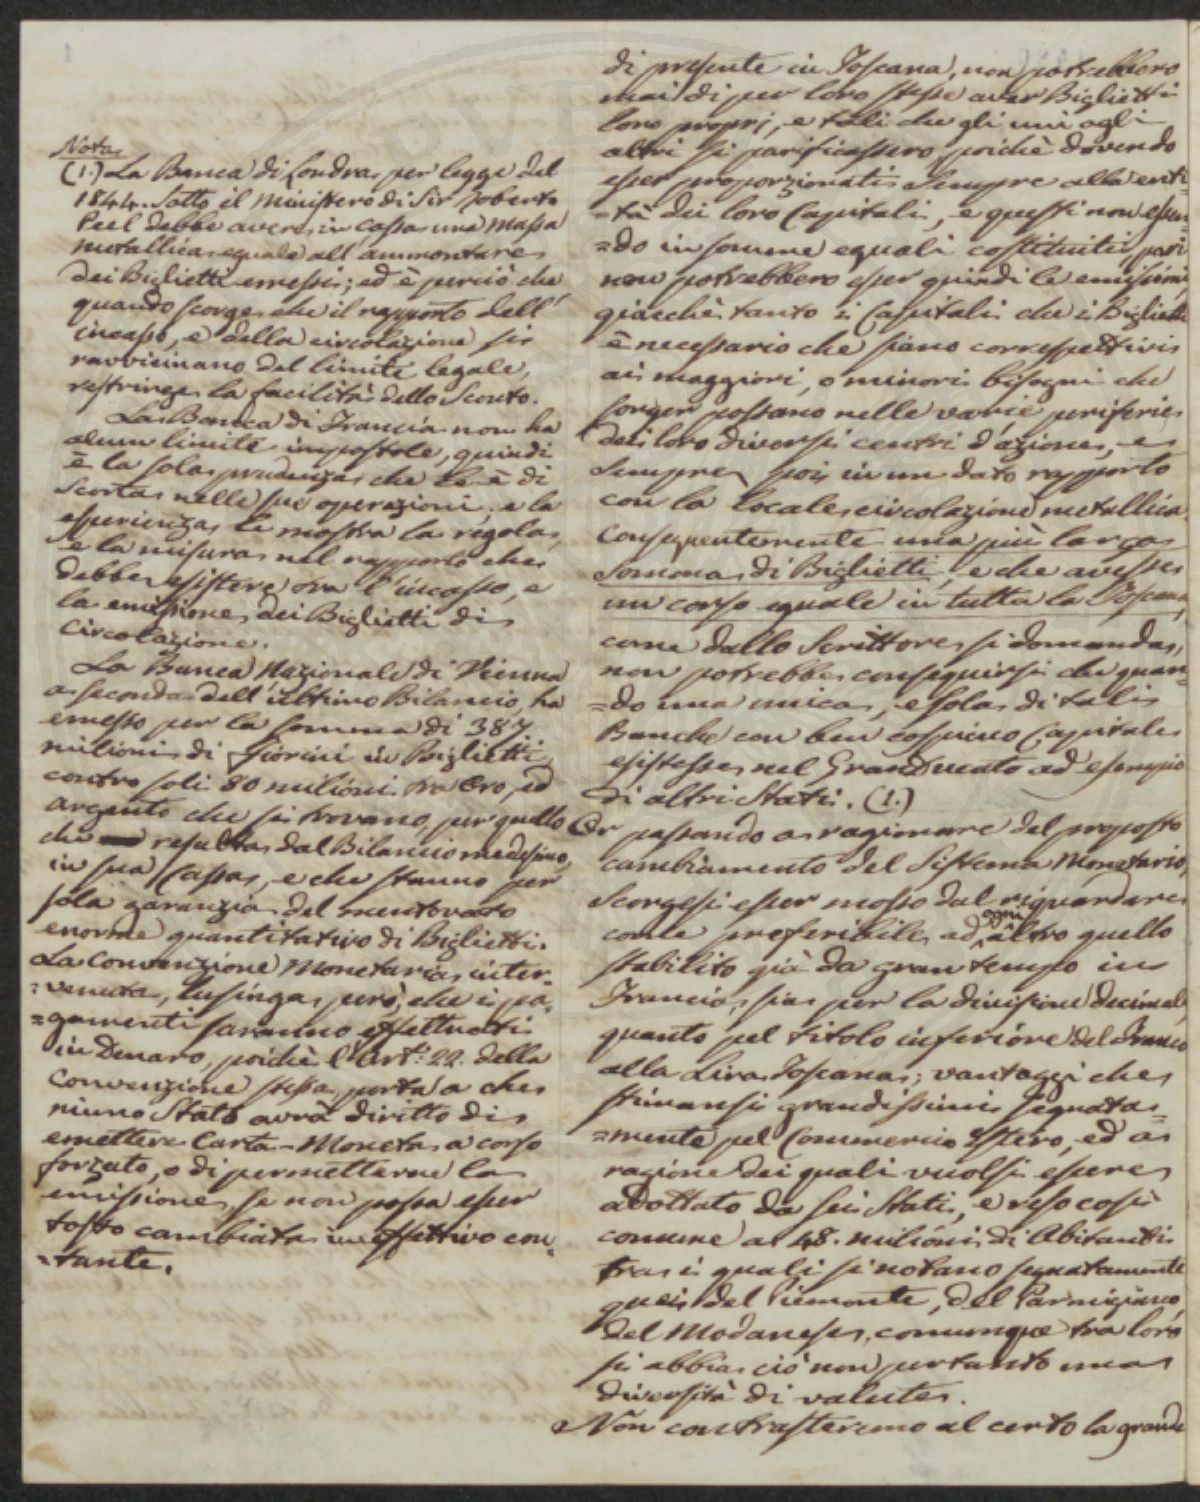 Nota
(1.) La Banca di Londra per legge del
1844. Sotto il Ministero di Sir Roberto
Peel debbe avere in cassa una massa
metallica eguale all'ammontare
dei Biglietti emessi; ed è perciò che
quando scorge che il rapporto dell'
incasso, e della circolazione si
ravvicinano del limite legale,
restringe la facilità dello Sconto.
La Banca di Francia non ha
alcun limite impostole, quindi
è la sola prudenza che le è di
Scorta nelle sue operazioni, e la
esperienza le mostra la regola,
e la misura nel rapporto che
debbe esistere tra l'incasso, e
la emissione dei Biglietti di
Circolazione.
La Banca Nazionale di Vienna
a seconda dell'ultimo Bilancio, ha
emesso per la somma di 387.
milioni di fiorini in Biglietti
contro soli 80 milioni tra Oro, ed
argento che si trovano, per quello
che resulta dal Bilancio medesimo,
in sua Cassa, e che stanno per
sola garanzia del mentovato
enorme quantitativo di Biglietti.
La Convenzione Monetaria inter-
=venuta, lusinga però, che i pa-
=gamenti saranno effettuati
in Denaro, poichè l'Art: 22. della
Convenzione stessa porta a che
niuno Stato avrà diritto di
emettere Carta-Moneta a corso
forzato, o di permetterne la
emissione, se non possa esser
tosto cambiata in effettivo con-
=tante.
di presente in Toscana, non potrebbero
mai di per loro stesse aver Biglietti
loro proprj, e tali che gli uni agli
altri si parificassero, poichè dovendo
esser proporzionati sempre alla enti-
=tà dei loro Capitali, e questi non essen-
=do in somme eguali costituiti, pari
non potrebbero esser quindi le emissioni
giacchè tanto i Capitali che i Biglietti
è necessario che siano correspettivi
ai maggiori, o minori bisogni che
sorger possano nelle varie periferie
dei loro diversi centri d'azione, e
sempre poi in un dato rapporto
con la locale circolazione metallica.
Conseguentemente una più larga
Somma di Biglietti, e che avesse
un corso eguale in tutta la Toscana,
come dallo Scrittore si domanda,
non potrebbe conseguirsi che quan-
=do una unica, e sola di tali
Banche con ben cospicuo Capitale
esistesse nel GranDucato ad esempio
di altri Stati. (1.)
Or passando a ragionare del proposto
cambiamento del Sistema Monetario,
Scorgesi esser mosso dal riguardare
come preferibile ad ogni altro quello
stabilito già da gran tempo in
Francia, sia per la divisione decimale,
quanto pel titolo inferiore del Franco
alla Lira Toscana; vantaggi che
stimansi grandissimi segnata-
=mente pel Commercio Estero, ed a
ragione dei quali vuolsi essere
adottato da sei Stati, e reso così
comune a 48. milioni di Abitanti
tra i quali si notano segnatamente
quei del Piemonte, del Parmigiano,
del Modanese, comunque tra loro
si abbia ciò non pertanto una
diversità di valute.
Non contrasteremo al certo la grande